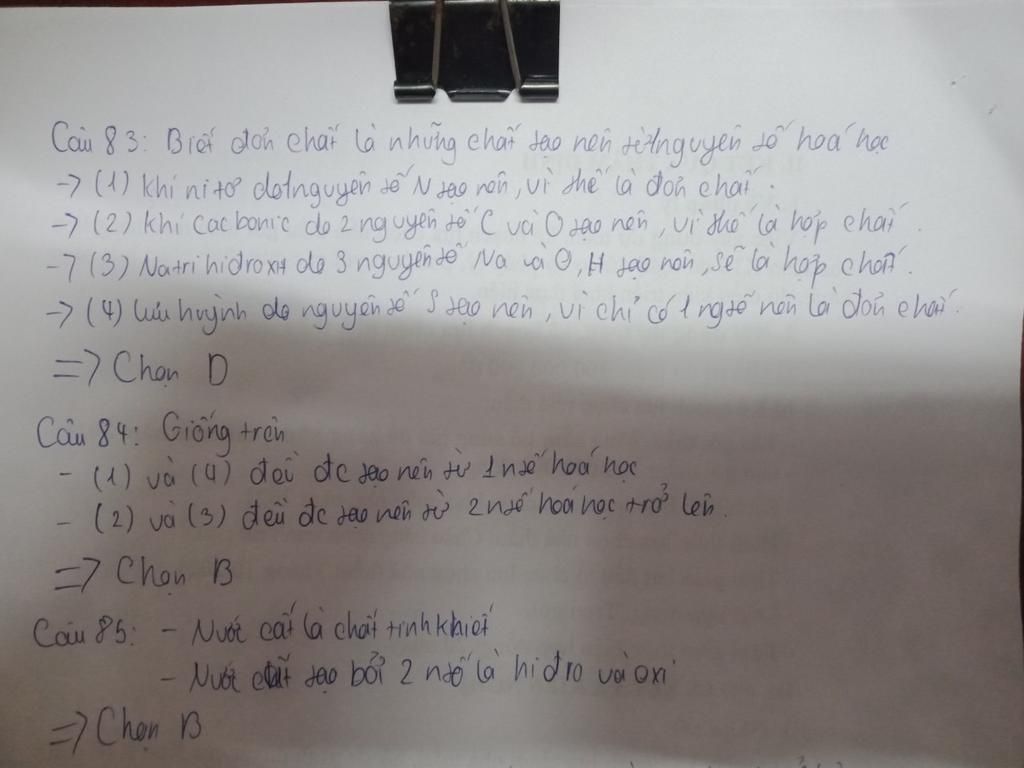 Câu 83: Biết đơn chất là những chất tạo nên từ 1 nguyên tố hoá học
-> (1) khí nitơ do 1 nguyên tố N tạo nên, vì thế là đơn chất.
-> (2) khí cacbonic do 2 nguyên tố C và O tạo nên, vì thế là hợp chất.
-> (3) Natri hiđroxit do 3 nguyên tố Na và O, H tạo nên, sẽ là hợp chất.
-> (4) lưu huỳnh do nguyên tố S tạo nên, vì chỉ có 1 ng tố nên là đơn chất.
=> Chọn D
Câu 84: Giống trên
- (1) và (4) đều đc tạo nên từ 1 n tố hoá học
- (2) và (3) đều đc tạo nên từ 2 n tố hoá học trở lên.
=> Chọn B
Câu 85: - Nước cất là chất tinh khiết
- Nước cất tạo bởi 2 n tố là hiđro và oxi
=> Chọn B